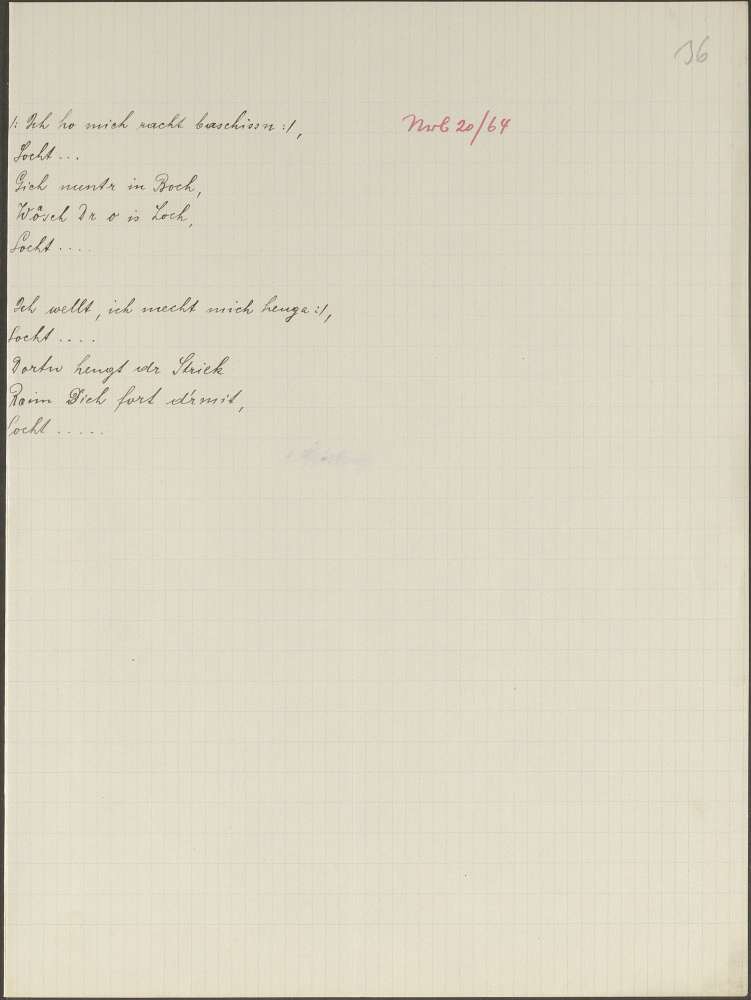 36
/: Ich ho mich racht baschissn :/,
Nrb 20/64
Socht ...
Gieh nuntr in Boch,
Wösch Dr o is Loch,
Socht ....
Ich wellt, ich mecht mich henga :/,
Socht ....
Dortn hengt dr Strick
Raim Dich fort d'rmit,
Socht .....